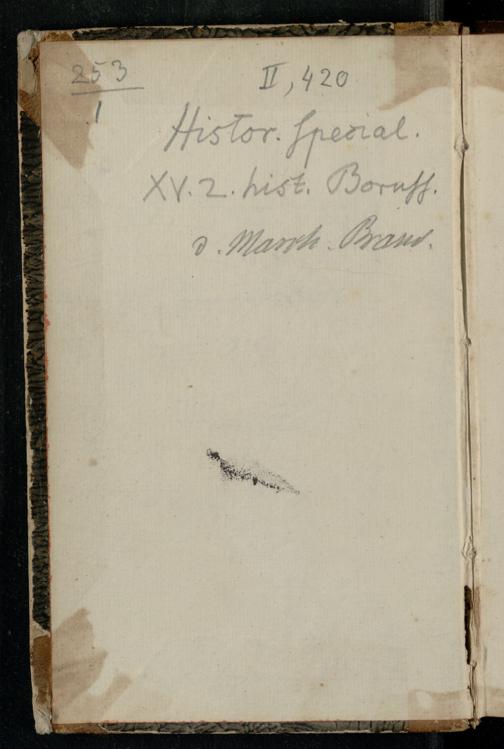 253 II, 420
1
Histor. special.
XV. 2. hist. Boruss.
d. March. Brand.